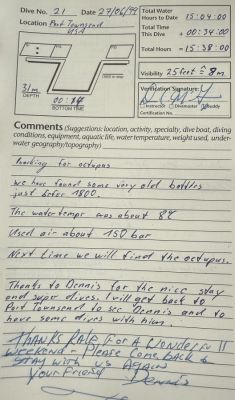 Dive No. 21 Date 27/06/99
Location Port Townsend
USA
Total Water
Hours to Date 15:04:00
Total Time
This Dive + 00:34:00
Total Hours = 15:38:00
Visibility 25 feet ≙ 8 m
31 m
DEPTH
00:34
BOTTOM TIME
Verification Signature:
Instructor Divemaster Buddy
Certification No.
Comments (Suggestions: location, activity, specialty, dive boat, diving
conditions, equipment, aquatic life, water temperature, weight used, under-
water geography/topography)
hunting for octopus
we have found some very old bottles
just befor 1800.
The water temper was about 8°
Used air about 150 bar
Next time we will find the octupus.
Thanks to Dennis for the nice stay
and super dives. I will get back to
Port Townsend to see Dennis and to
have some dives with him.
THANKS RALF FOR A WONDERFUL
WEEKEND - PLEASE COME BACK &
STAY with US AGAIN
Your Friend Dennis